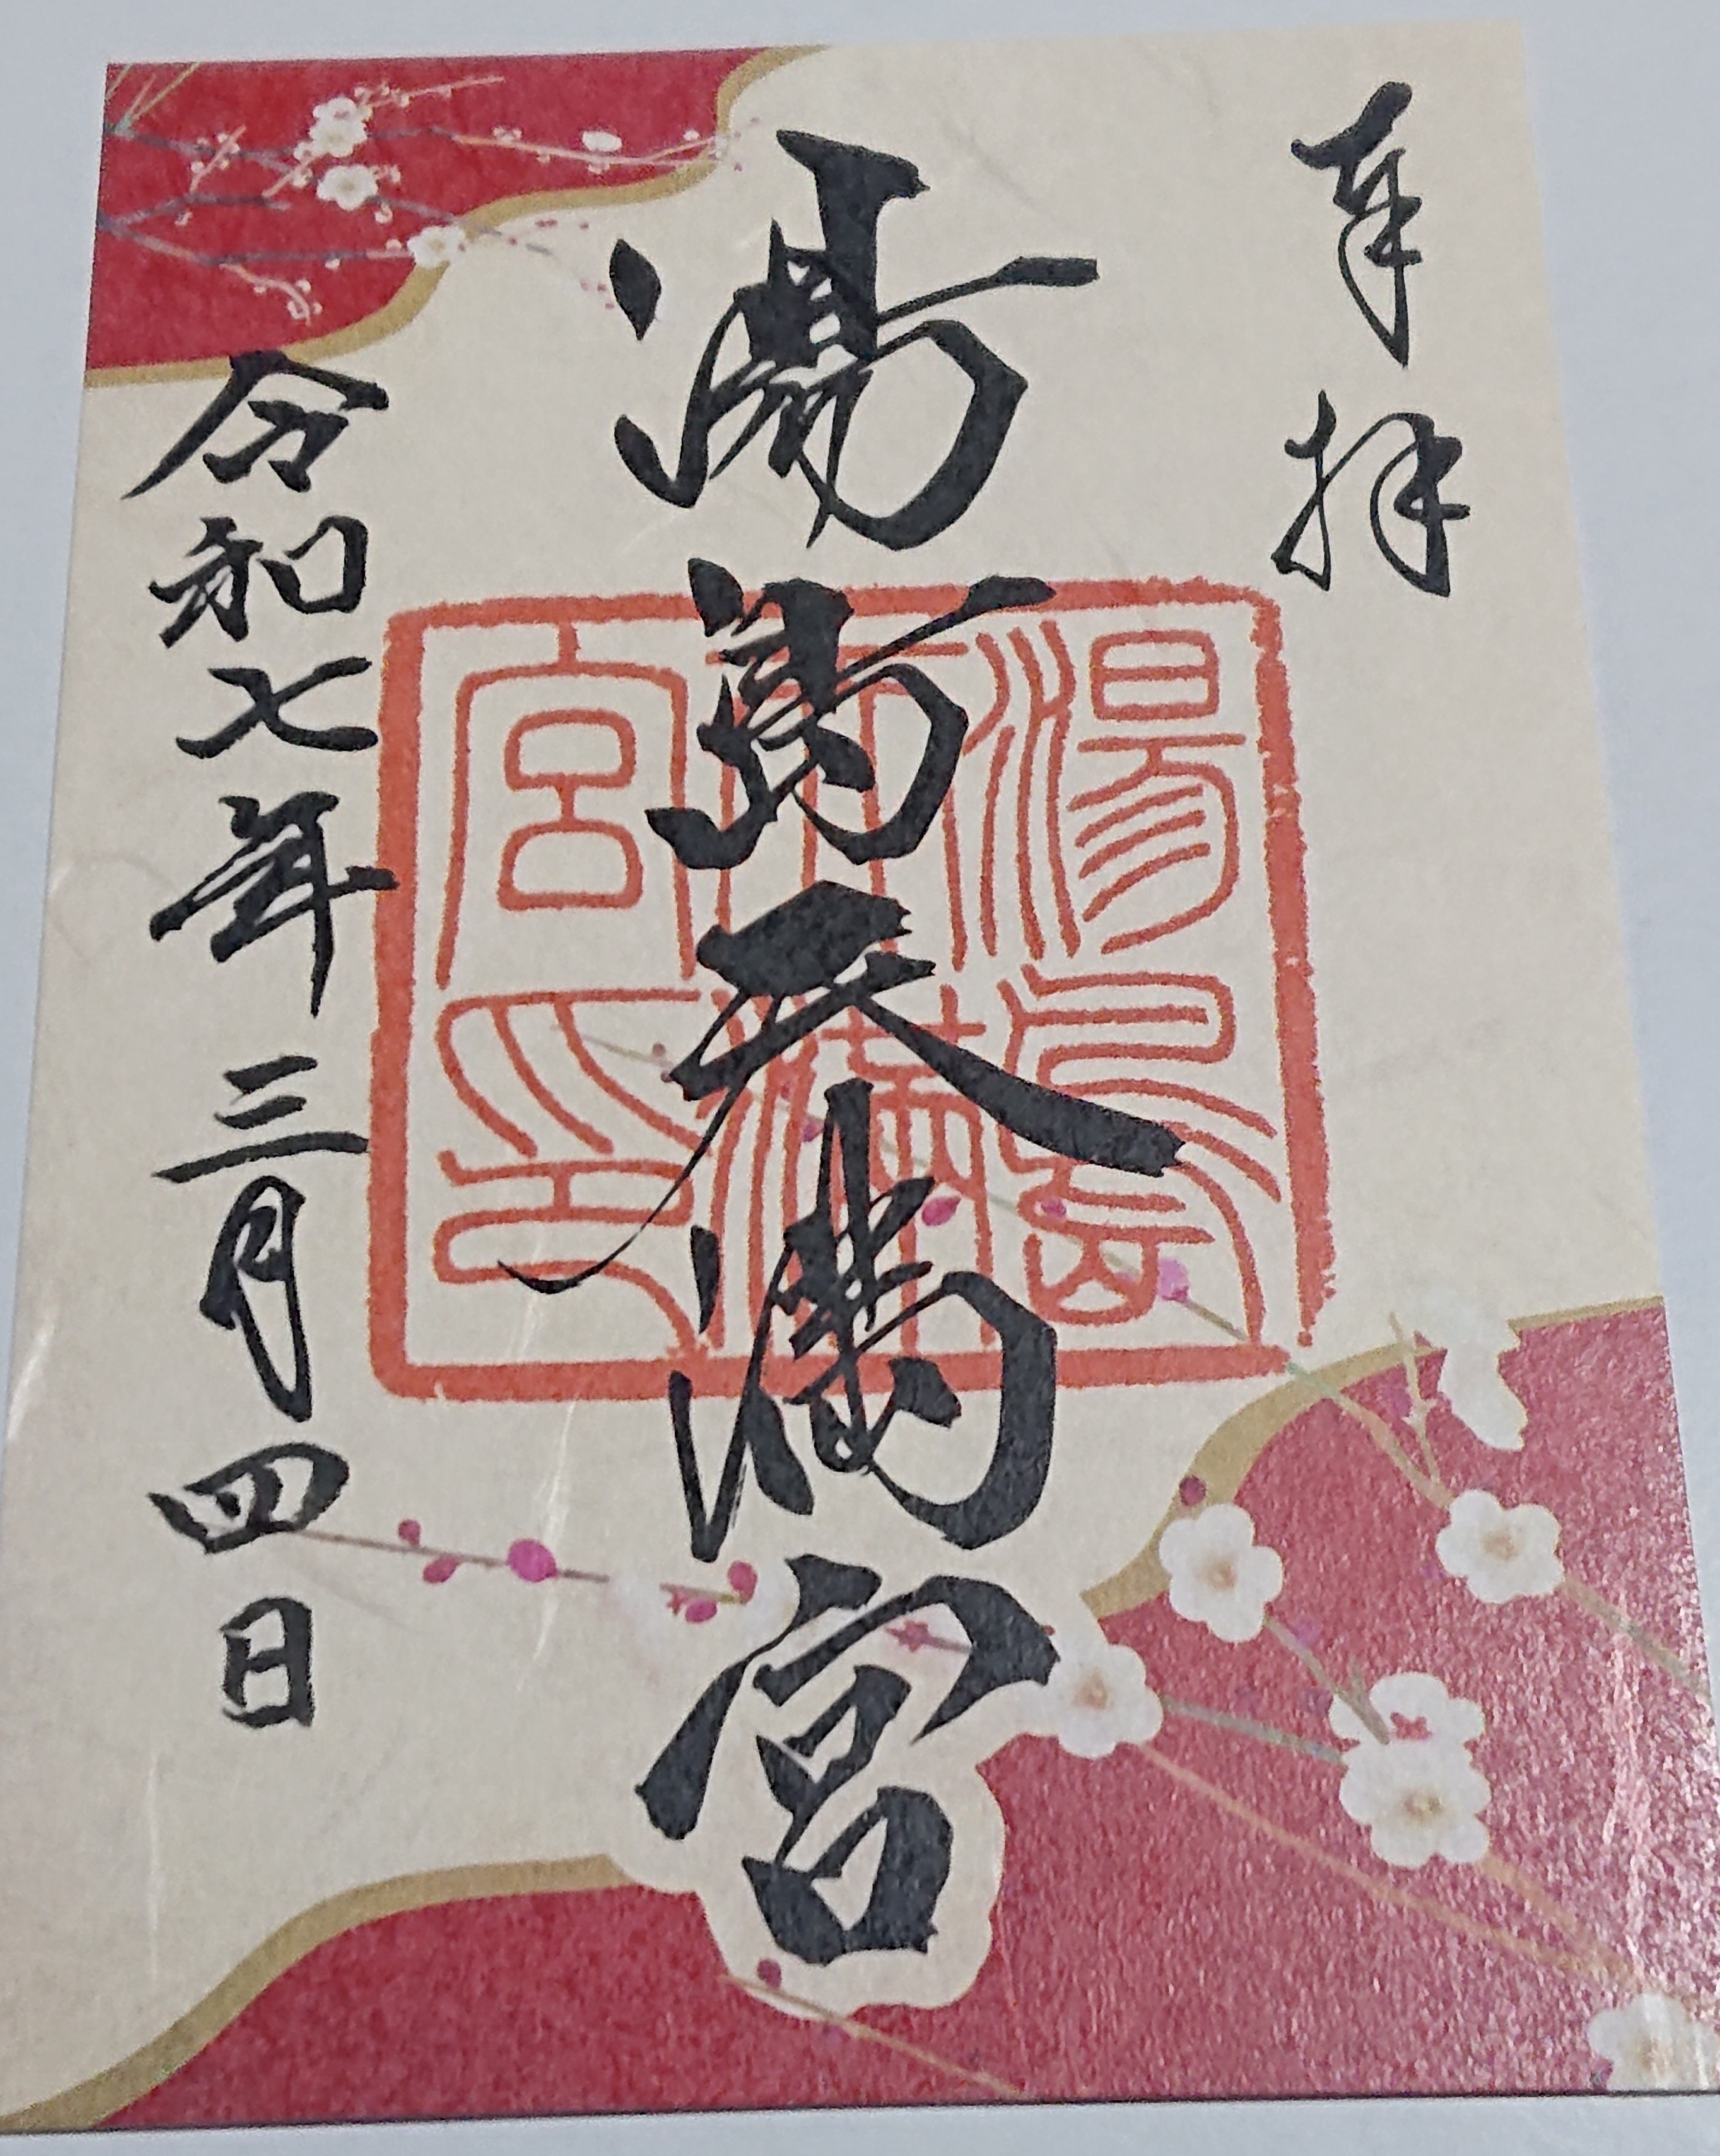 奉拝
湯島天満宮
湯島天満宮印
令和七年三月四日